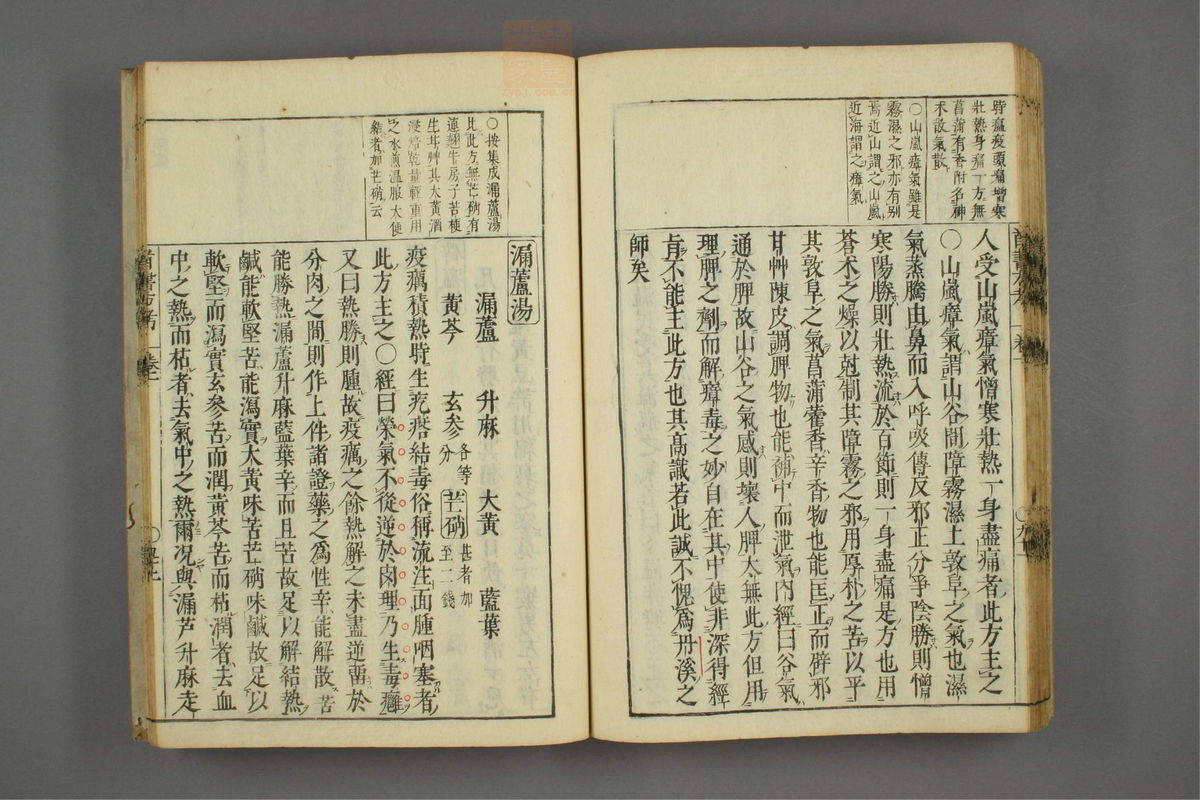 時瘟疫頭痛增寒
壯熱身痛一方無
菖蒲有香附名神
朮散氣散
○山嵐瘴氣雖是
霧濕之邪亦有别
焉近山謂之山嵐
近海謂之瘴氣
人受山嵐瘴氣憎寒壯熱一身盡痛者此方主之
○山嵐瘴氣謂山谷間障霧濕土敦阜之氣也濕
氣蒸騰由鼻而入呼吸傳反邪正分爭陰勝則憎
寒陽勝則壯熱流於百節則一身盡痛是方也用
蒼术之燥以尅制其障霧之邪用厚朴之苦以平
其敦阜之氣菖蒲藿香辛香物也能匡正而辟邪
甘艸陳皮調脾物也能補中而泄氣內經曰谷氣
通於脾故山谷之氣感則壞人脾太無此方但用
理脾之劑而解瘴毒之妙自在其中使非深得經
肯不能主此方也其高識若此誠不愧爲丹溪之
師矣
○按集成漏蘆湯
比此方無芒硝有
連翹牛房子苦梗
生甘艸其大黃酒
浸焙乾量輕重用
之水煎溫服大便
結者加芒硝云
漏蘆湯
漏蘆 升麻 大黃 藍葉
黃芩 玄參各等分 芒硝甚者加至二錢
疫癘積熱時生疙瘩結毒俗稱流注面腫咽塞者
此方主之○經曰榮氣不從逆於肉理乃生毒癰
又曰熱勝則腫故疫癘之餘熱解之未盡逆畱於
分肉之間則作上件諸證藥之爲性辛能解散苦
能勝熱漏蘆升麻藍葉辛而且苦故足以解結熱
鹹能軟堅苦能瀉實大黃味苦芒硝味鹹故足以
軟堅而瀉實玄參苦而潤黃芩苦而枯潤者去血
中之熱而枯者去氣中之熱爾况與漏芦升麻走